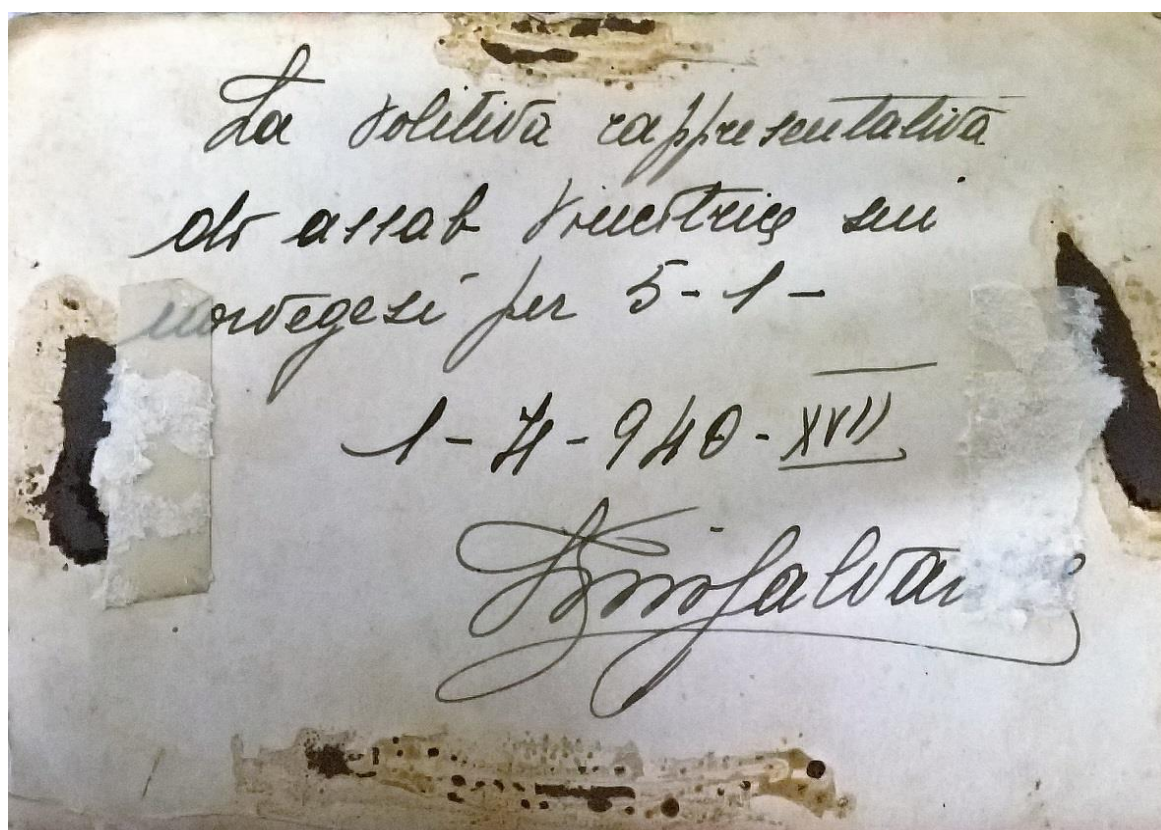 La volitiva rappresentativa
di assab vincitrice sui
norvegesi per 5-1-
1-4-940-XVII